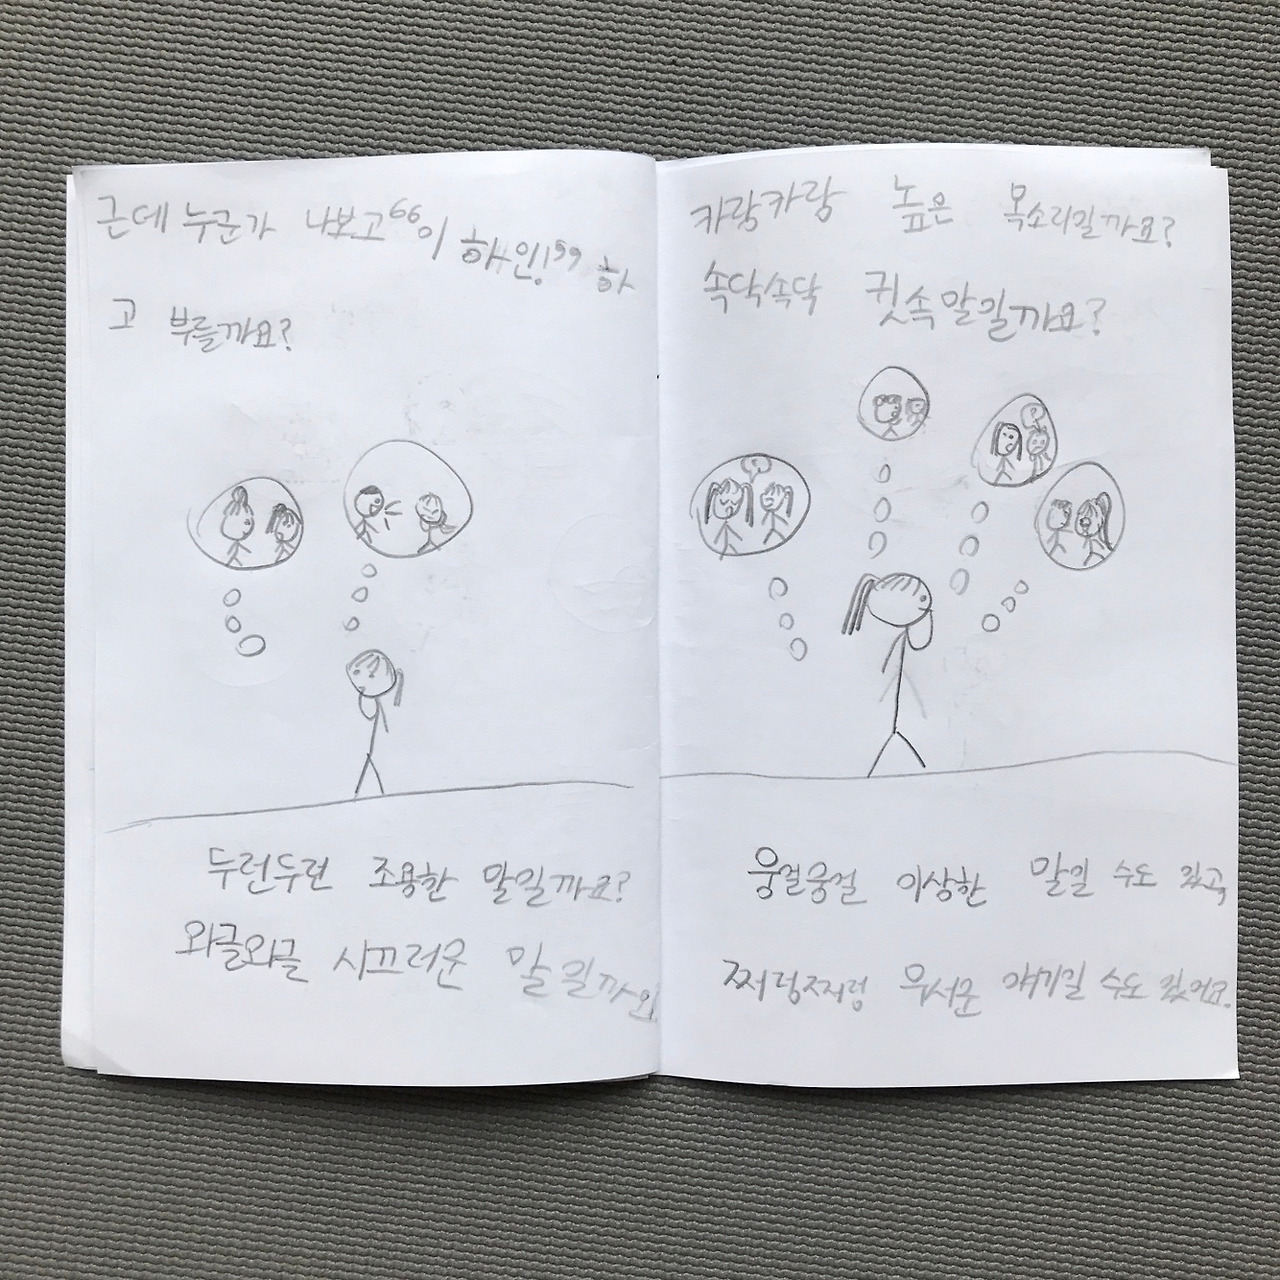 근데 누군가 나보고 "이 하인!" 하
고 부를까요?
두런두런 조용한 말일까요?
와글와글 시끄러운 말일까요
카랑카랑 높은 목소리일까요?
속닥속닥 귓속말일까요?
웅얼웅얼 이상한 말일 수도 있고
쩌렁쩌렁 무서운 얘기일 수도 있어요.